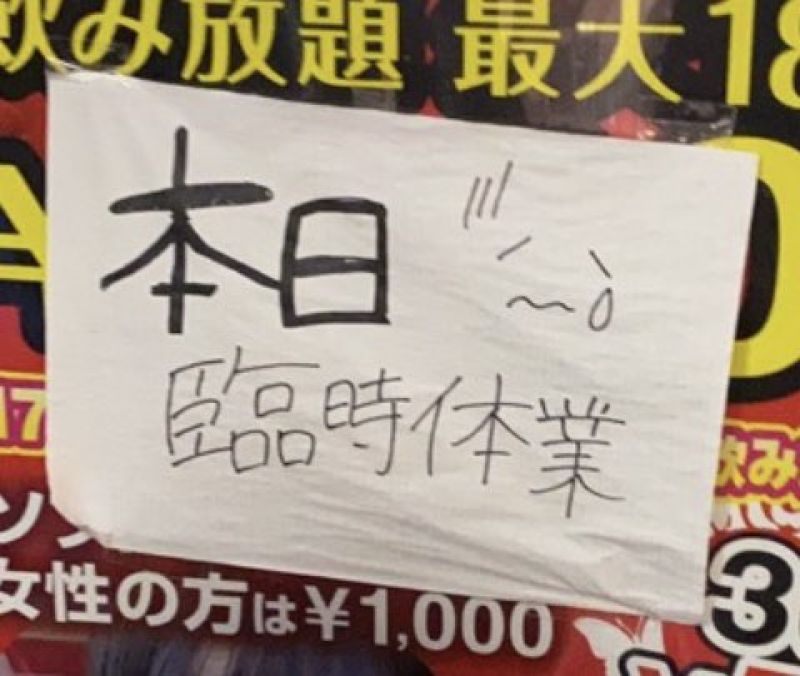 飲み放題 最大18
本日
臨時休業
飲み
女性の方は¥1,000